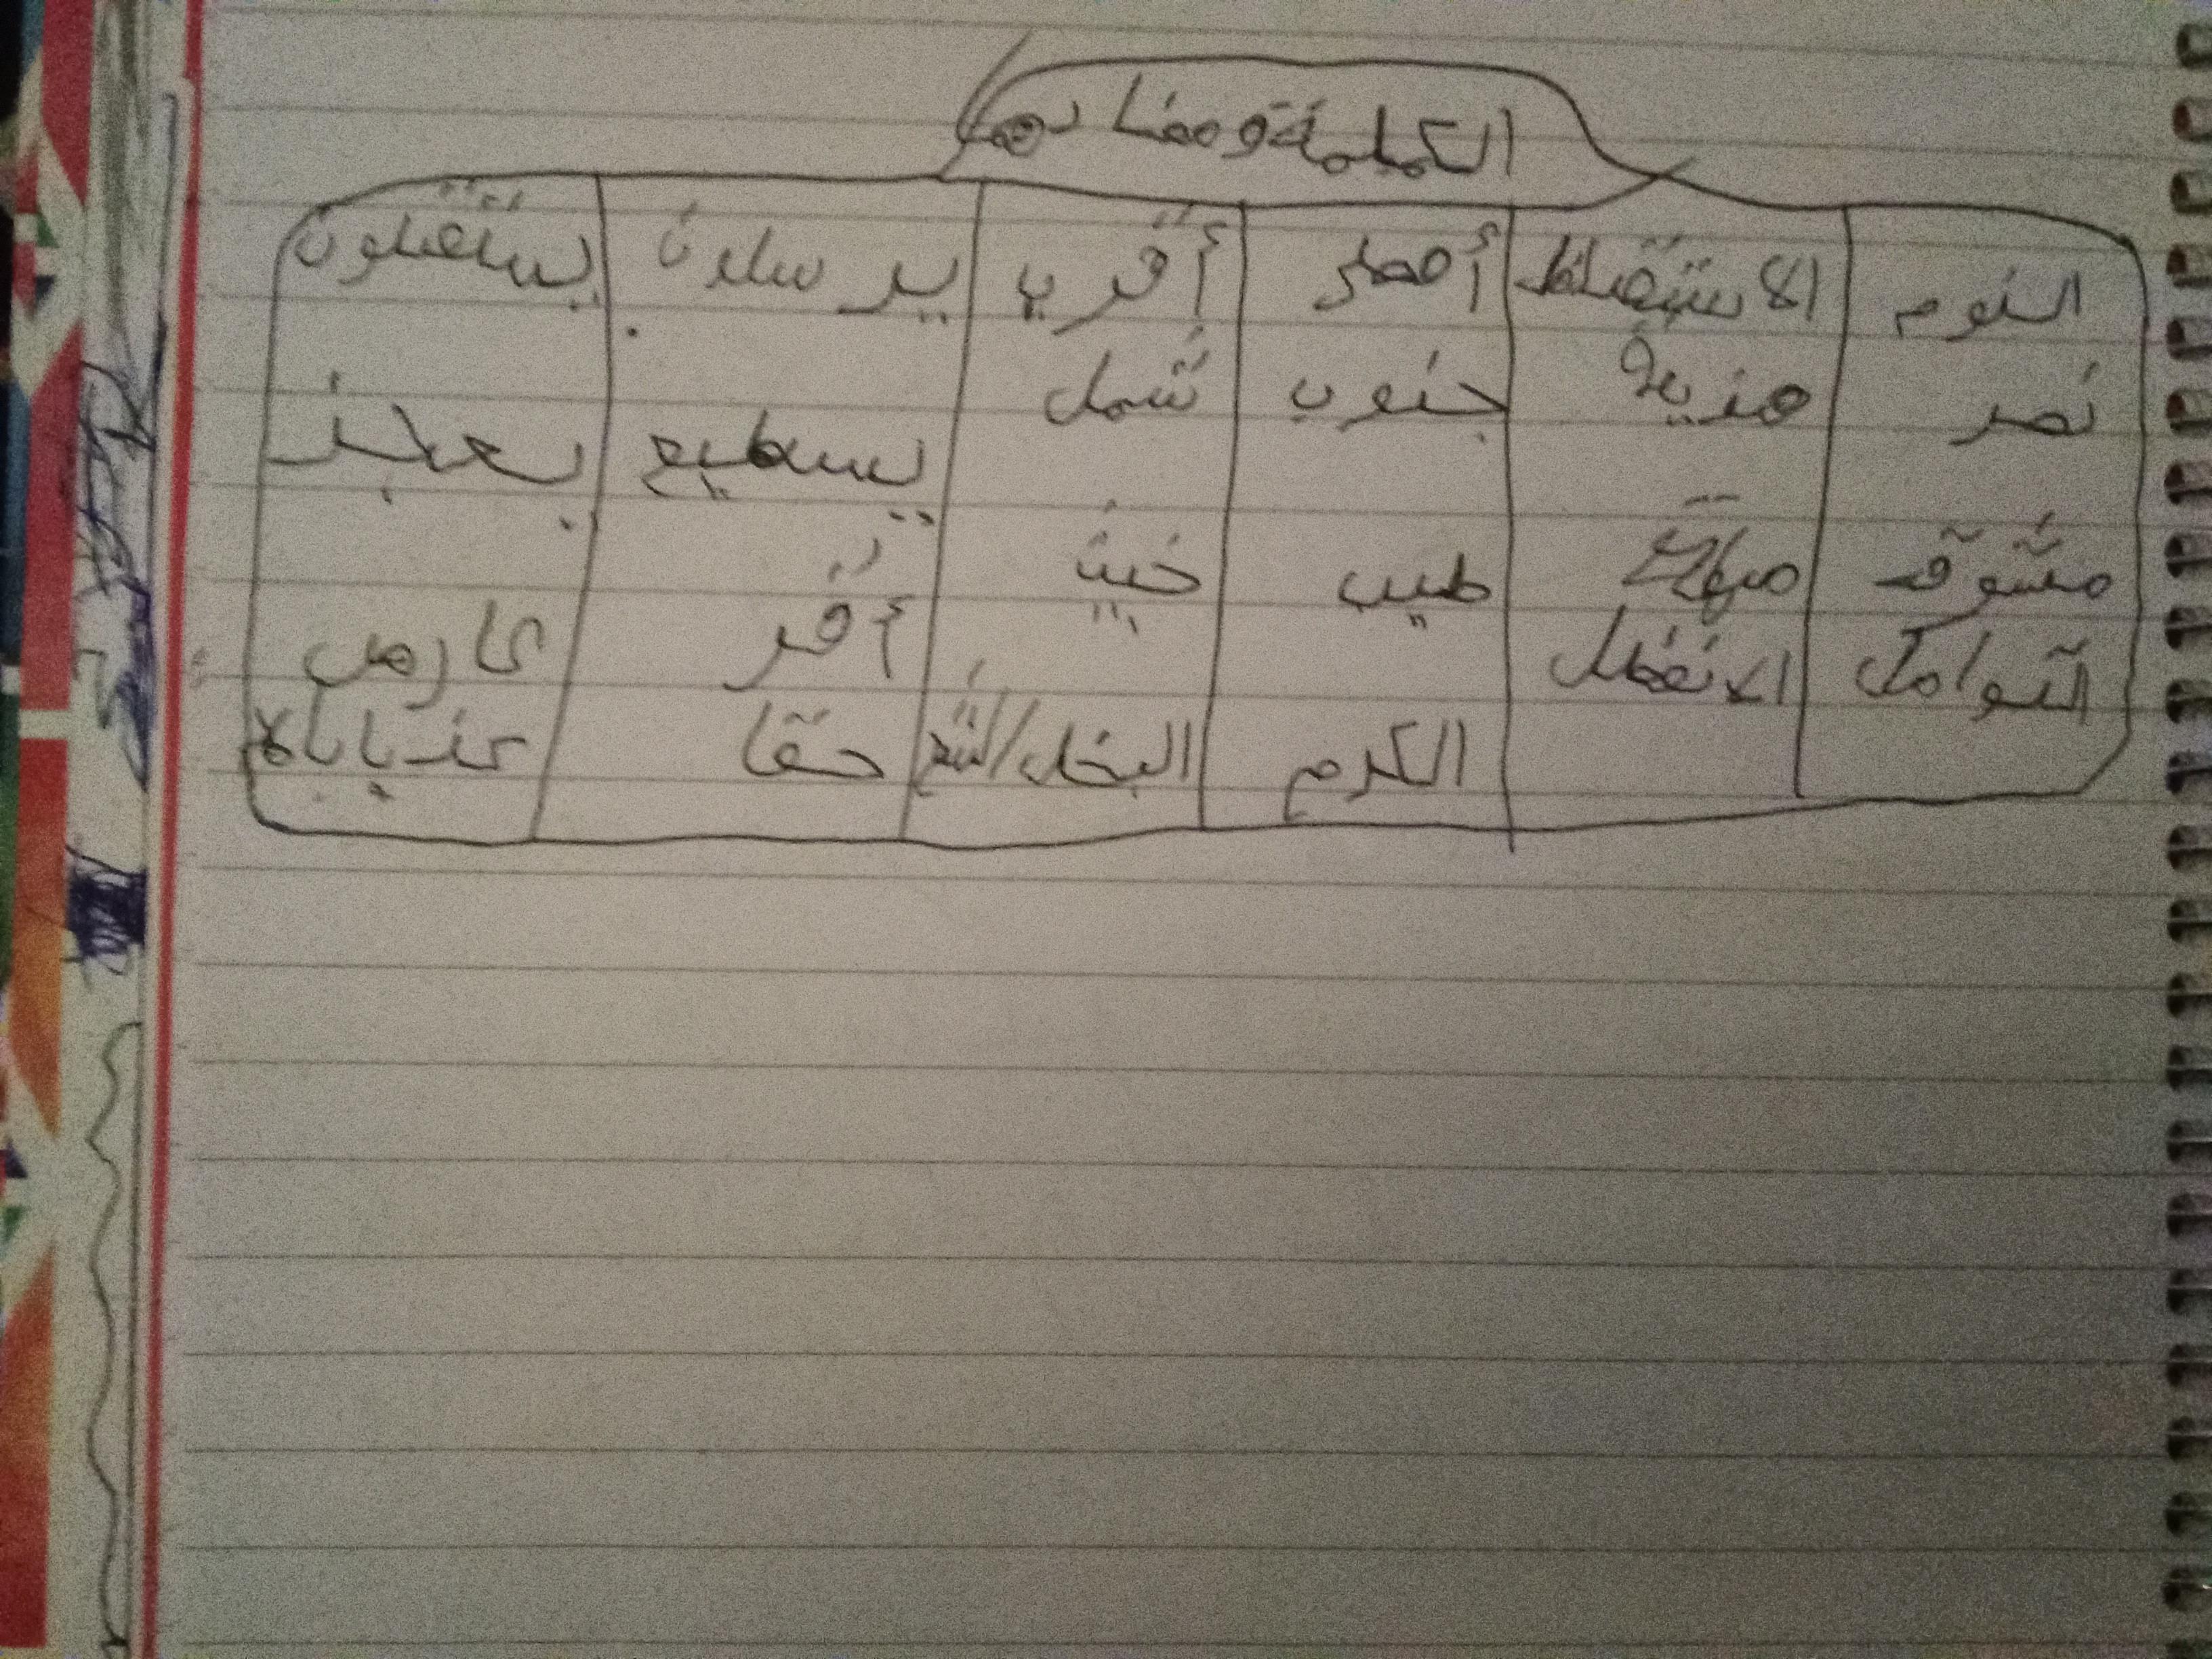 الكلمة ومضادها
النوم الاستيقاظ أصغر أقرب يرسلون يستقبلون
نصر هزيمة جنوب شمل يسطيع بعجز
مشوقة طيب خبيث أقر عارض
التوامل الانفطل الكرم البخل/الشح حقا كذبا